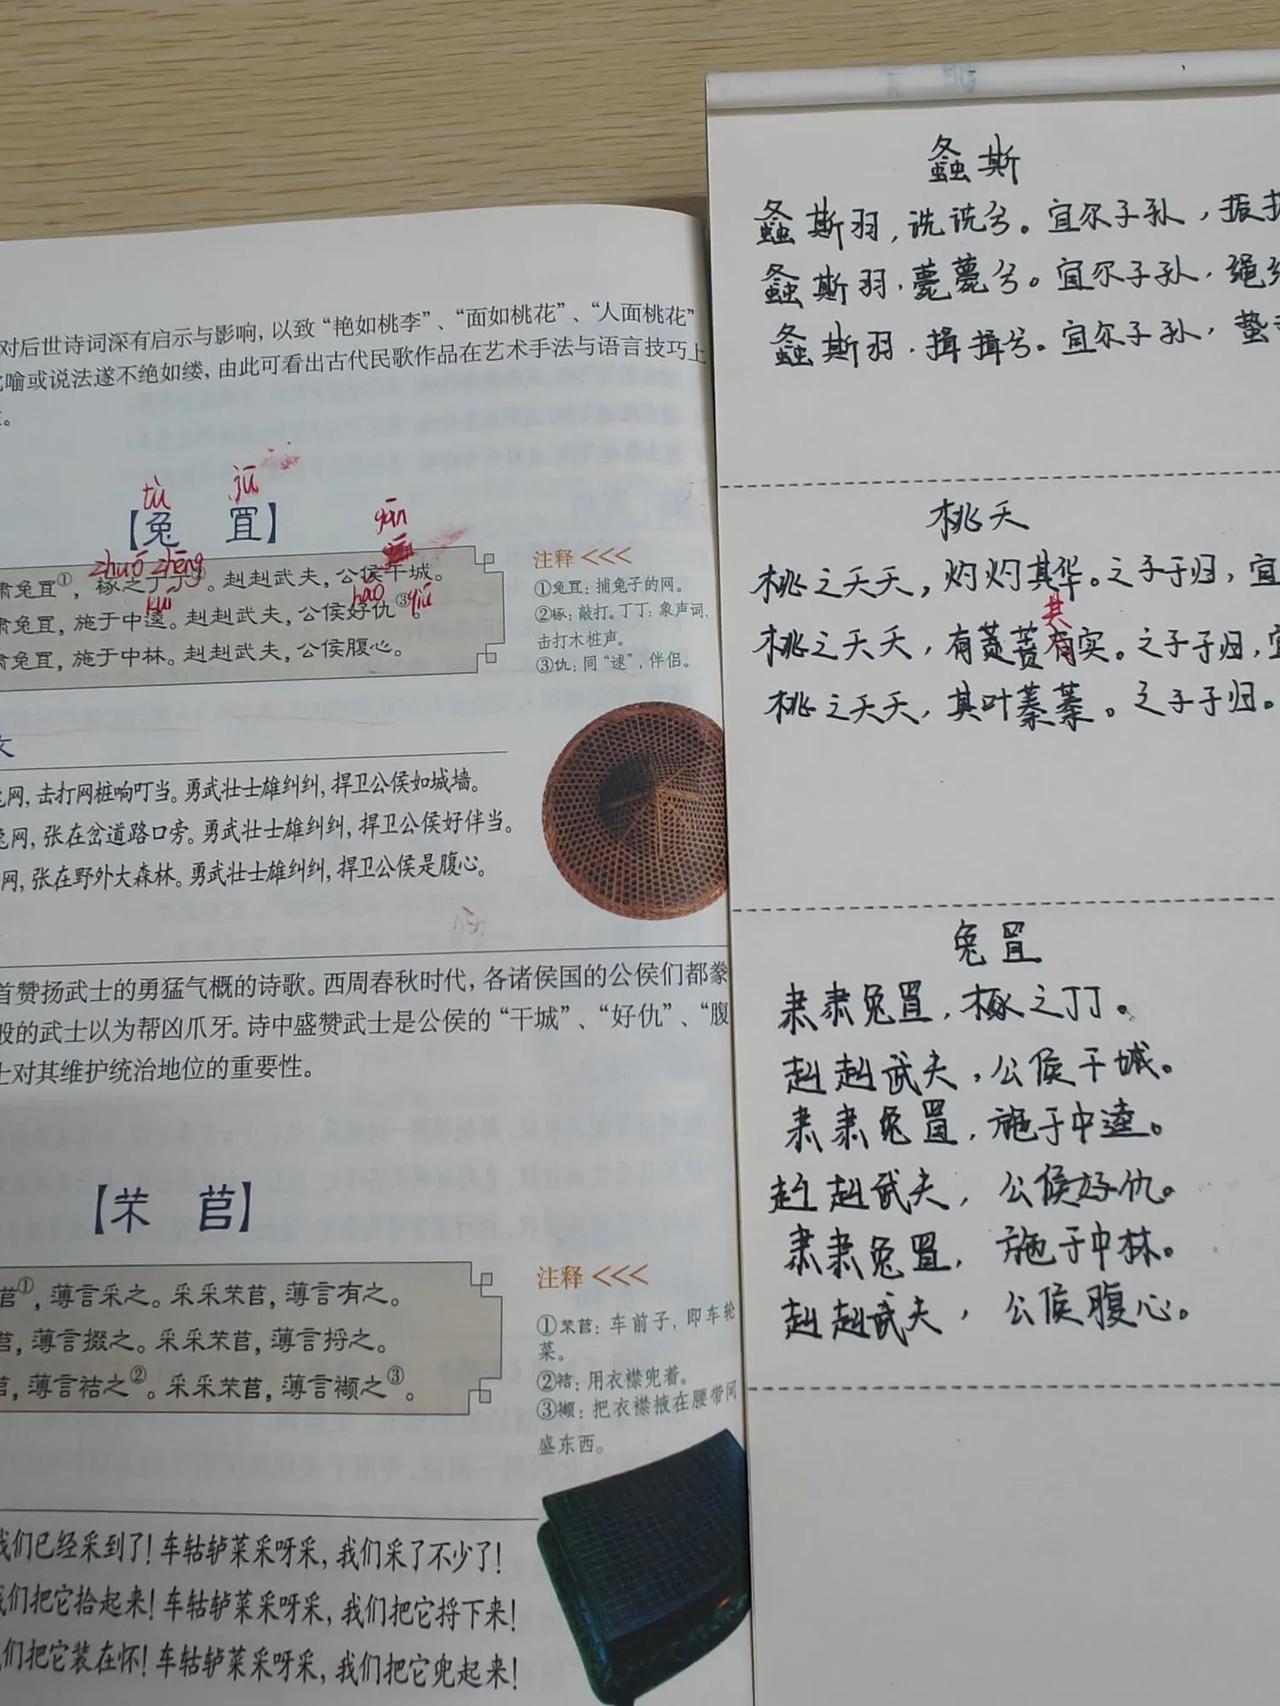 对后世诗词深有启示与影响，以致“艳如桃李”、“面如桃花”、“人面桃花”
喻或说法遂不绝如缕，由此可看出古代民歌作品在艺术手法与语言技巧上
tù jū
【兔 罝】
gān
zhuō zhēng
兔罝①，椓之丁丁②。赳赳武夫，公侯干城。
kuí hǎo qiú
肃兔罝，施于中逵。赳赳武夫，公侯好仇③。
肃兔罝，施于中林。赳赳武夫，公侯腹心。
注释 <<<
①兔罝：捕兔子的网。
②椓：敲打。丁丁：象声词，
击打木桩声。
③仇：同“逑”，伴侣。
网，击打网桩响叮当。勇武壮士雄纠纠，捍卫公侯如城墙。
兔网，张在岔道路口旁。勇武壮士雄纠纠，捍卫公侯好伴当。
网，张在野外大森林。勇武壮士雄纠纠，捍卫公侯是腹心。
首赞扬武士的勇猛气概的诗歌。西周春秋时代，各诸侯国的公侯们都豢
般的武士以为帮凶爪牙。诗中盛赞武士是公侯的“干城”、“好仇”、“腹
士对其维护统治地位的重要性。
【芣 苢】
苢①，薄言采之。采采芣苢，薄言有之。
苢，薄言掇之。采采芣苢，薄言捋之。
苢，薄言袺之②。采采芣苢，薄言襭之③。
注释 <<<
①芣苢：车前子，即车轮
菜。
②袺：用衣襟兜着。
③襭：把衣襟掖在腰带间
盛东西。
我们已经采到了！车轱轳菜采呀采，我们采了不少了！
我们把它拾起来！车轱轳菜采呀采，我们把它捋下来！
们把它装在怀！车轱轳菜采呀采，我们把它兜起来！
螽斯
螽斯羽，诜诜兮。宜尔子孙，振
螽斯羽，薨薨兮。宜尔子孙，绳
螽斯羽，揖揖兮。宜尔子孙，蛰
桃夭
桃之夭夭，灼灼其华。之子于归，宜
其
桃之夭夭，有蕡蕡有实。之子于归，宜
桃之夭夭，其叶蓁蓁。之子于归。
兔罝
肃肃兔罝，椓之丁丁。
赳赳武夫，公侯干城。
肃肃兔罝，施于中逵。
赳赳武夫，公侯好仇。
肃肃兔罝，施于中林。
赳赳武夫，公侯腹心。